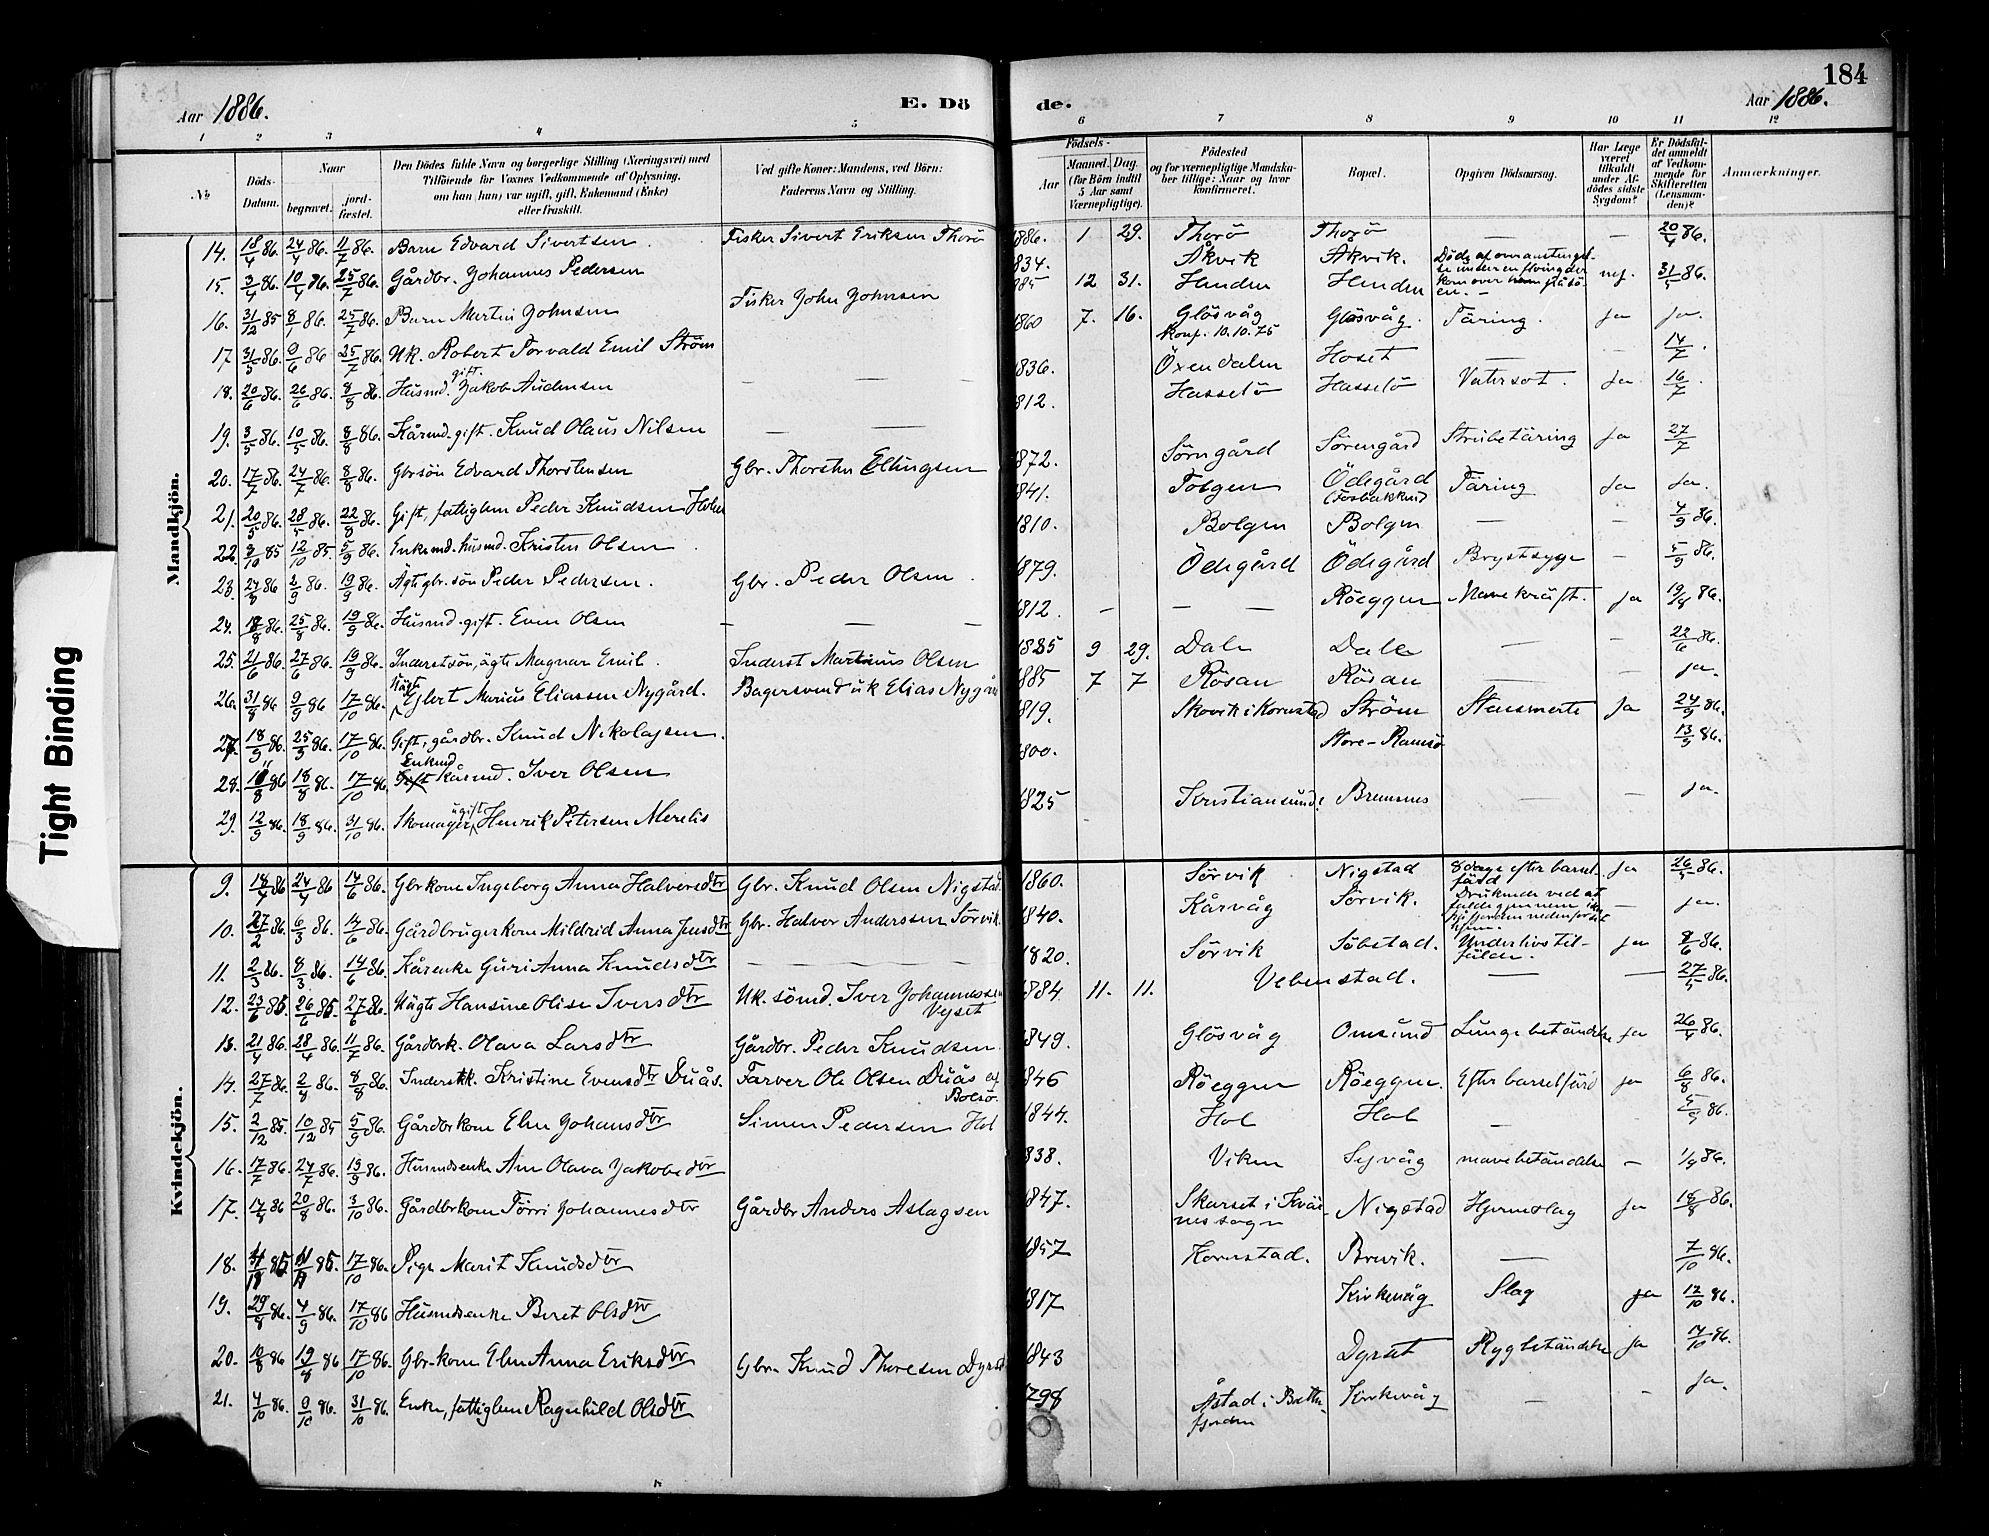 184
Aar 1886.
E. Dö
de.
Aar 1886.
1 2 3 4 5 6 7 8 9 10 11 12
No
Döds-Datum.
Naar
begravet.
jord-fæstet.
Den Dödes fulde Navn og borgerlige Stilling (Næringsvei) med
Tilföiende for Voxnes Vedkommende af Oplysning,
om han (hun) var ugift, gift, Enkemand (Enke)
eller fraskilt.
Ved gifte Koner: Mandens, ved Börn:
Faderens Navn og Stilling.
Födsels-
Aar
Maaned. Dag.
(for Börn indtil
5 Aar samt
Værnepligtige).
Födested
og for værnepligtige Mandska-
ber tillige: Naar og hvor
konfirmeret.
Bopæl.
Opgiven Dödsaarsag.
Har Læge
været
tilkaldt
under Af-
dödes sidste
Sygdom?
Er Dödsfal-
det anmeldt
af Vedkom-
mende for
Skifteretten
(Lensman-
den)?
Anmærkninger.
Tight Binding
Mandkjön.
14. 18/4 86. 24/4 86. 11/7 86. Barn Edvard Sivertsen Fisker Sivert Eriksen Thorö 1886. 1 29. Thorö Thorö — — 20/4 86.
15. 3/4 86. 10/4 86. 25/7 86. Gårdbr. Johannes Pedersen 834. Åkvik Åkvik. nej. 31/5 86.
16. 31/12 85 8/1 86. 25/7 86. Barn Martin Johnsen Fisker John Johnsen 885 12 31. Henden Henden —
17 31/5 86. 9/6 86 25/7 86. Uk. Robert Torvald Emil Ström 1860 7. 16. Glösvåg Konf. 10.10.75 Glösvåg. Täring. ja ja.
18. 20/6 86. 26/6 86. 8/8 86. Husmd. gift. Jakob Audensen — — — 1836. Öxendalen Hoset — — 14/7.
19. 3/5 86. 10/5 86. 8/8 86. Kårmd. gift. Knud Olaus Nilsen — — 812. Hasselö Hasselö Vatersot. ja 16/7.
20. 17/7 86. 24/7 86. 8/8 86. Gbrsön Edvard Thorstensen Gbr. Thorsten Ellingsen 1872. Sörngård Sörengård Strubetäring ja 27/7
21. 20/5 86. 28/5 86. 22/8 86. Gift, fattiglem Peder Knudsen Holen 1841. Tolgen Ödegård Täring ja ja.
22. 3/10 85 12/10 85. 5/9 86. Enkemd. husmd. Kristen Olsen 1810. Bolgen Bolgen — — 4/9 86.
23. 27/8 86 2/9 86. 19/9 86. Ägte gbr. sön Peder Pedersen. Gbr. Peder Olsen. 1879. Ödegård Ödegård Brystsyge — 5/9 86.
24. 18/8 86. 25/8 86. 19/9 86. Husmd. gift. Even Olsen — — — 1812. — — — Röeggen Mavekräft. ja 19/8 86.
25. 21/6 86. 27/6 86. 19/9 86. Inderstsön, ägte Magnar Emil. Inderst Martinus Olsen 1885 9 29. Dale Dale — — 22/6 86.
26. 31/8 86 9/9 86 17/10 86. Uägte Ejlert Marius Eliassen Nygård. Bagersvend uk Elias Nygård 1885 7 7 Rösan Rösan — — ja.
27. 18/9 86. 25/9 86. 17/10 86. Gift, gårdbr. Knud Nikolajsen. 1819. Skovik i Kornstad Ström Stensmerte ja 24/9 86.
28. 11/8 86 18/8 86. 17/10 86. Enkmd. kårmd. Iver Olsen 1800. Store-Ramsö 13/9 86.
29. 12/9 86. 18/9 86. 31/10 86. Skomager, ugift Henrik Petersen Merelis 1825 Kristiansund Bremsnes — — ja.
Kvindekjön.
9. 18/4 86 24/4 86 14/6 86. Gbrkone Ingeborg Anna Halversdtr Gbr. Knud Olsen Nigstad. 1860. Sörvik Nigstad 8 dage efter barsel-färd ja 26/5 86.
10. 27/2 86. 6/3 86. 14/6 86. Gårdbrugerkone Mildrid Anna Jensdtr Gbr. Halver Anderssen Sörvik. 1840. Kårvåg Sörvik. Druknede ved at falde gjennem isen — ja.
11. 2/3 86. 8/3 86. 14/6 86. Kårenke Guri Anna Knudsdtr — — — 1820. Sörvik Söbstad. Underlivstil-fälde. ja 8/6 86.
12. 23/6 85 26/6 85. 27/6 86. Uägte Hansine Olise Iversdtr Uk. sömd. Iver Johannessen Vejset 1884. 11. 11. Vebenstad. — — 27/5 86.
13. 21/4 86. 28/4 86. 11/7 86. Gårdbrk. Olava Larsdtr Gårdbr. Peder Knudsen 1849. Glösvåg Omsund Lungebetändelse ja 26/4 86.
14. 27/7 86. 2/8 86. 8/8 86. Inderstk. Kristine Evensdtr Duås. Farver Ole Olsen Duås af Bolsö. 1846 Röeggen Röeggen. Efter barselfärd ja 6/8 86.
15. 2/12 85. 10/12 85 5/9 86. Gårdbrkone Elen Johansdtr Simen Pedersen Hol 1844. Hol Hol — 5/9 86.
16. 17/7 86. 24/7 86. 19/9 86. Husmdsenke Ane Olava Jakobsdtr 838. Viken Sejvåg mavebetändelse — 1/9 86.
17. 14/8 86 20/8 86. 3/10 86. Gårdbrkone Törri Johannesdtr Gårdbr Anders Aslagsen 1847. Skarset i Kvär-nessogn Nigstad Hjerneslag ja 18/8 86.
18. 85. 17/10 86. Pige Marit Knudsdtr 1857 Kornstad. Brevik. — 7/10 86.
19. 29/8 86. 4/9 86. 17/10 86 Husmdsenke Beret Olsdtr 817 Kirkevåg Slag ja 12/10 86.
20. 10/8 86 19/8 86 17/10 86. Gbr-kone Elen Anna Eriksdtr Gbr. Knud Thoresen Dyrset 1843 Dyrset Rygbetändelse ja 14/10 86.
21. 4/10 86. 9/10 86. 31/10 86. Enke, fattiglem Ragnhild Olsdtr 1798 Åstad i Batn-fjorden Kirkevåg — — ja.